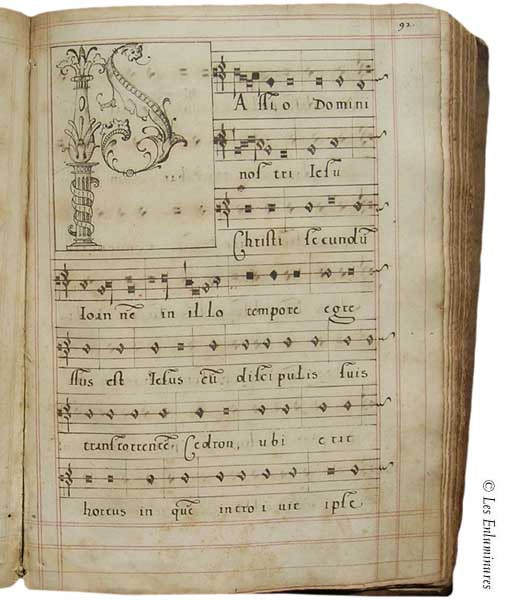 92.
PAssi o Domini
nos tri Iesu
Christi secundũ
Ioan nẽ in il lo tempore egre
ssus est Iesus cũ disci pulis suis
trans torrentẽ Cedron, ubi e rat
hortus in quẽ intro i vit ipse
© Les Enluminures